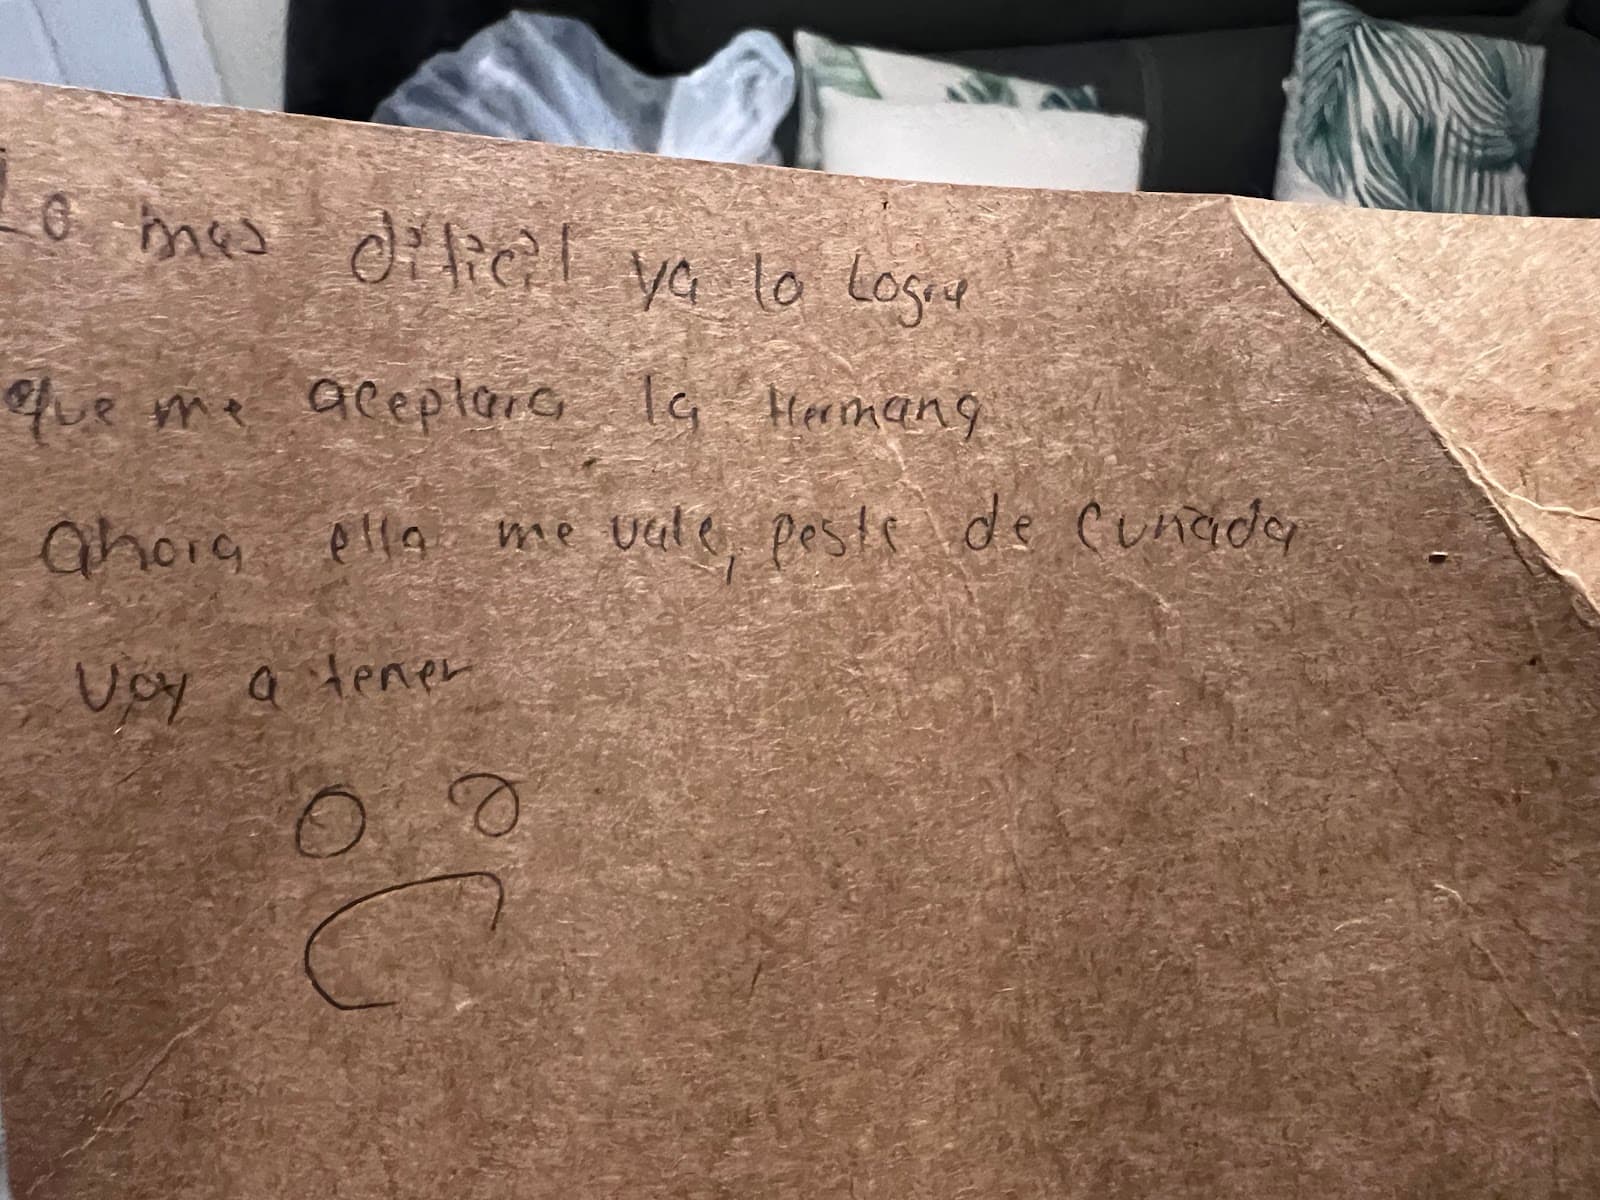 Lo mas dificil ya lo Logre
que me aceptara la Hermana
Ahora ella me vale, peste de Cuñada
Voy a tener